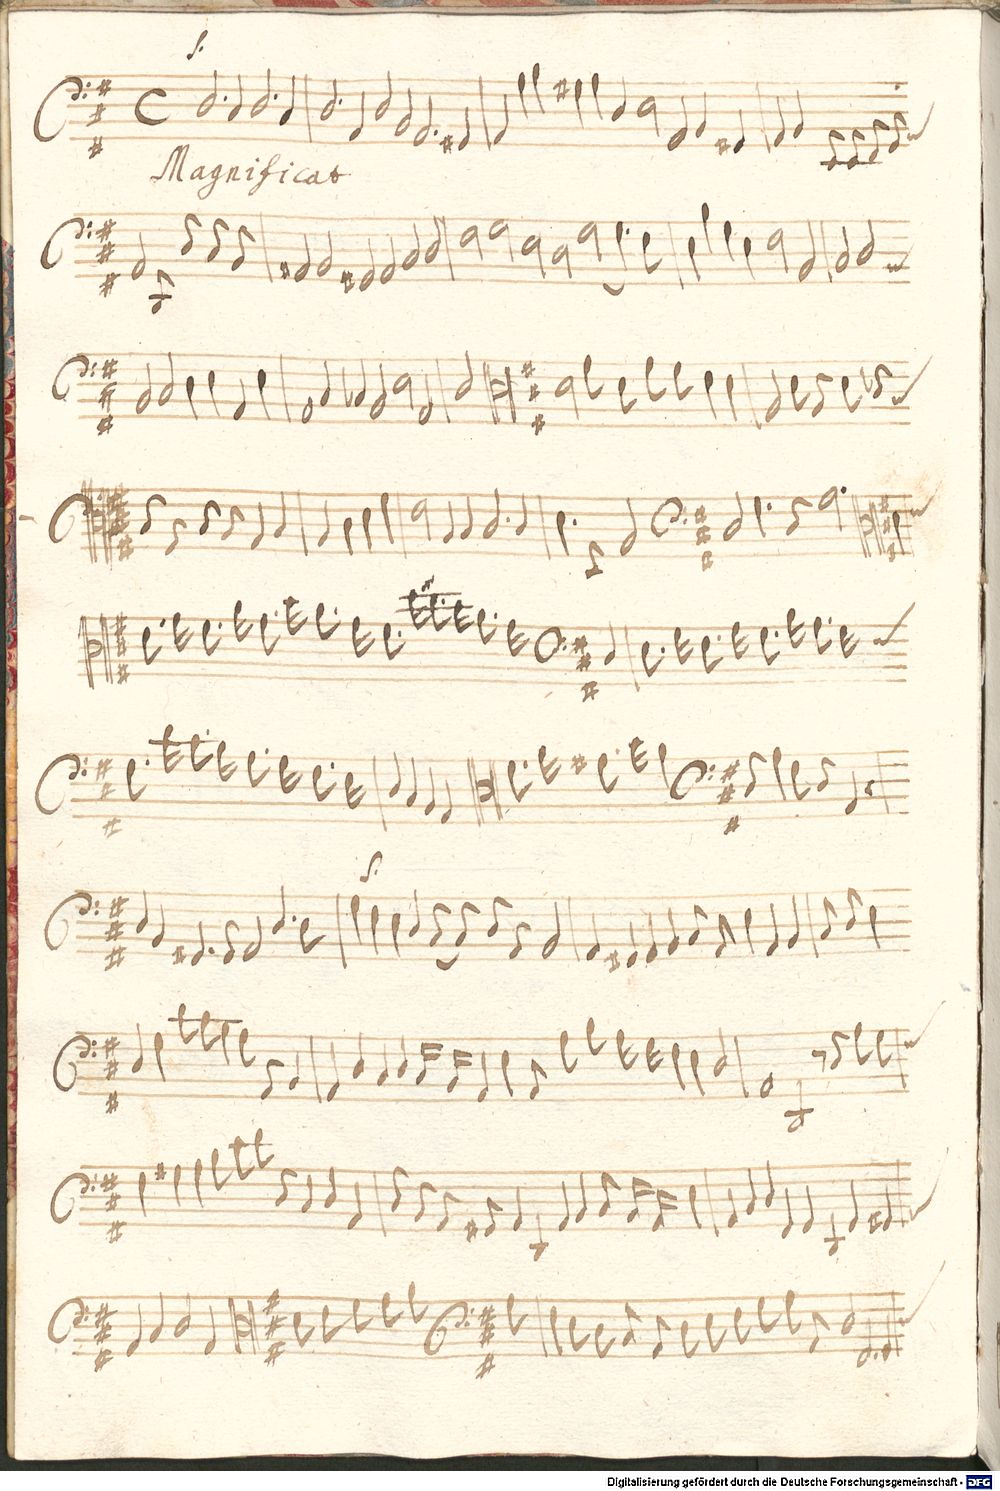 S.
Magnificat
S.
Digitalisierung gefördert durch die Deutsche Forschungsgemeinschaft - DFG